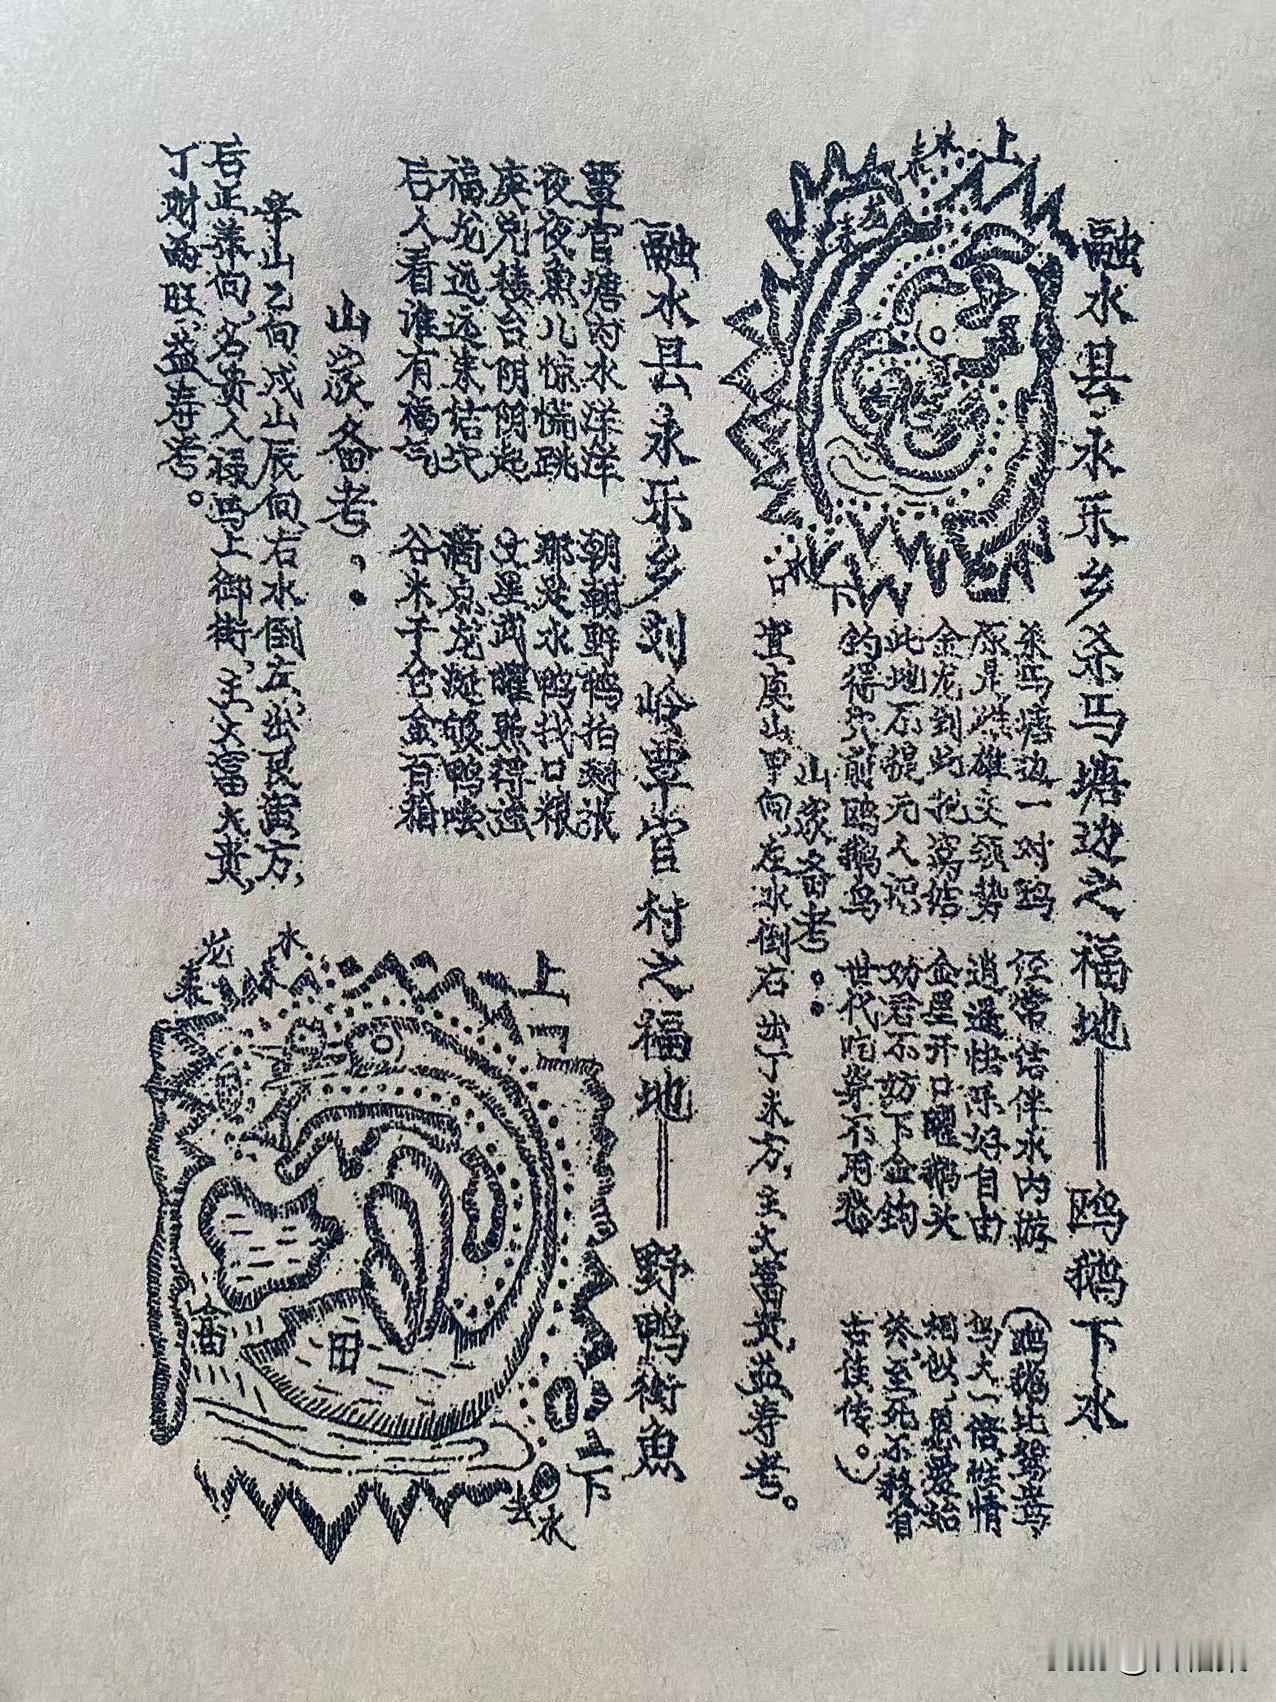 融水县永乐乡杀马塘边之福地——鸥鹅下水
上
水去
龙来
下
水口
杀马塘边一对鸥 经常结伴水内游
原是雌雄交颈势 逍遥快乐好自由
金龙到此把窝结 金星开口曜鹅头
此地不提无人识 劝君不妨下金钩
钓得只前鸥鹅鸟 世代吃
(鸥鹅比鸳鸯
鸟大一倍,性情
相似,恩爱始
终,至死不移,自
古佳传。)
山家备考:
寅山甲向,左水倒右,出丁未方,主大富贵,益寿考。
融水县永乐乡刘岭覃官村之福地——野鸭衔魚
覃官塘内水洋洋 朝朝野鸭拍翅张
夜夜魚儿惊慌跳 那是水鸭找口粮
庚兑楼台阴阴起 文星武曜照得
福龙远远来结穴 滴点龙涎够鸭噹
后人看谁有福气 谷米千仓金百箱
山家备考:
辛山乙向,戍山辰向,右水倒左,出艮寅方,
后正葬向,名贵人禄马上御街,主大富大贵,
丁财两旺益寿考。
上
水来
龙来
田
下
水去